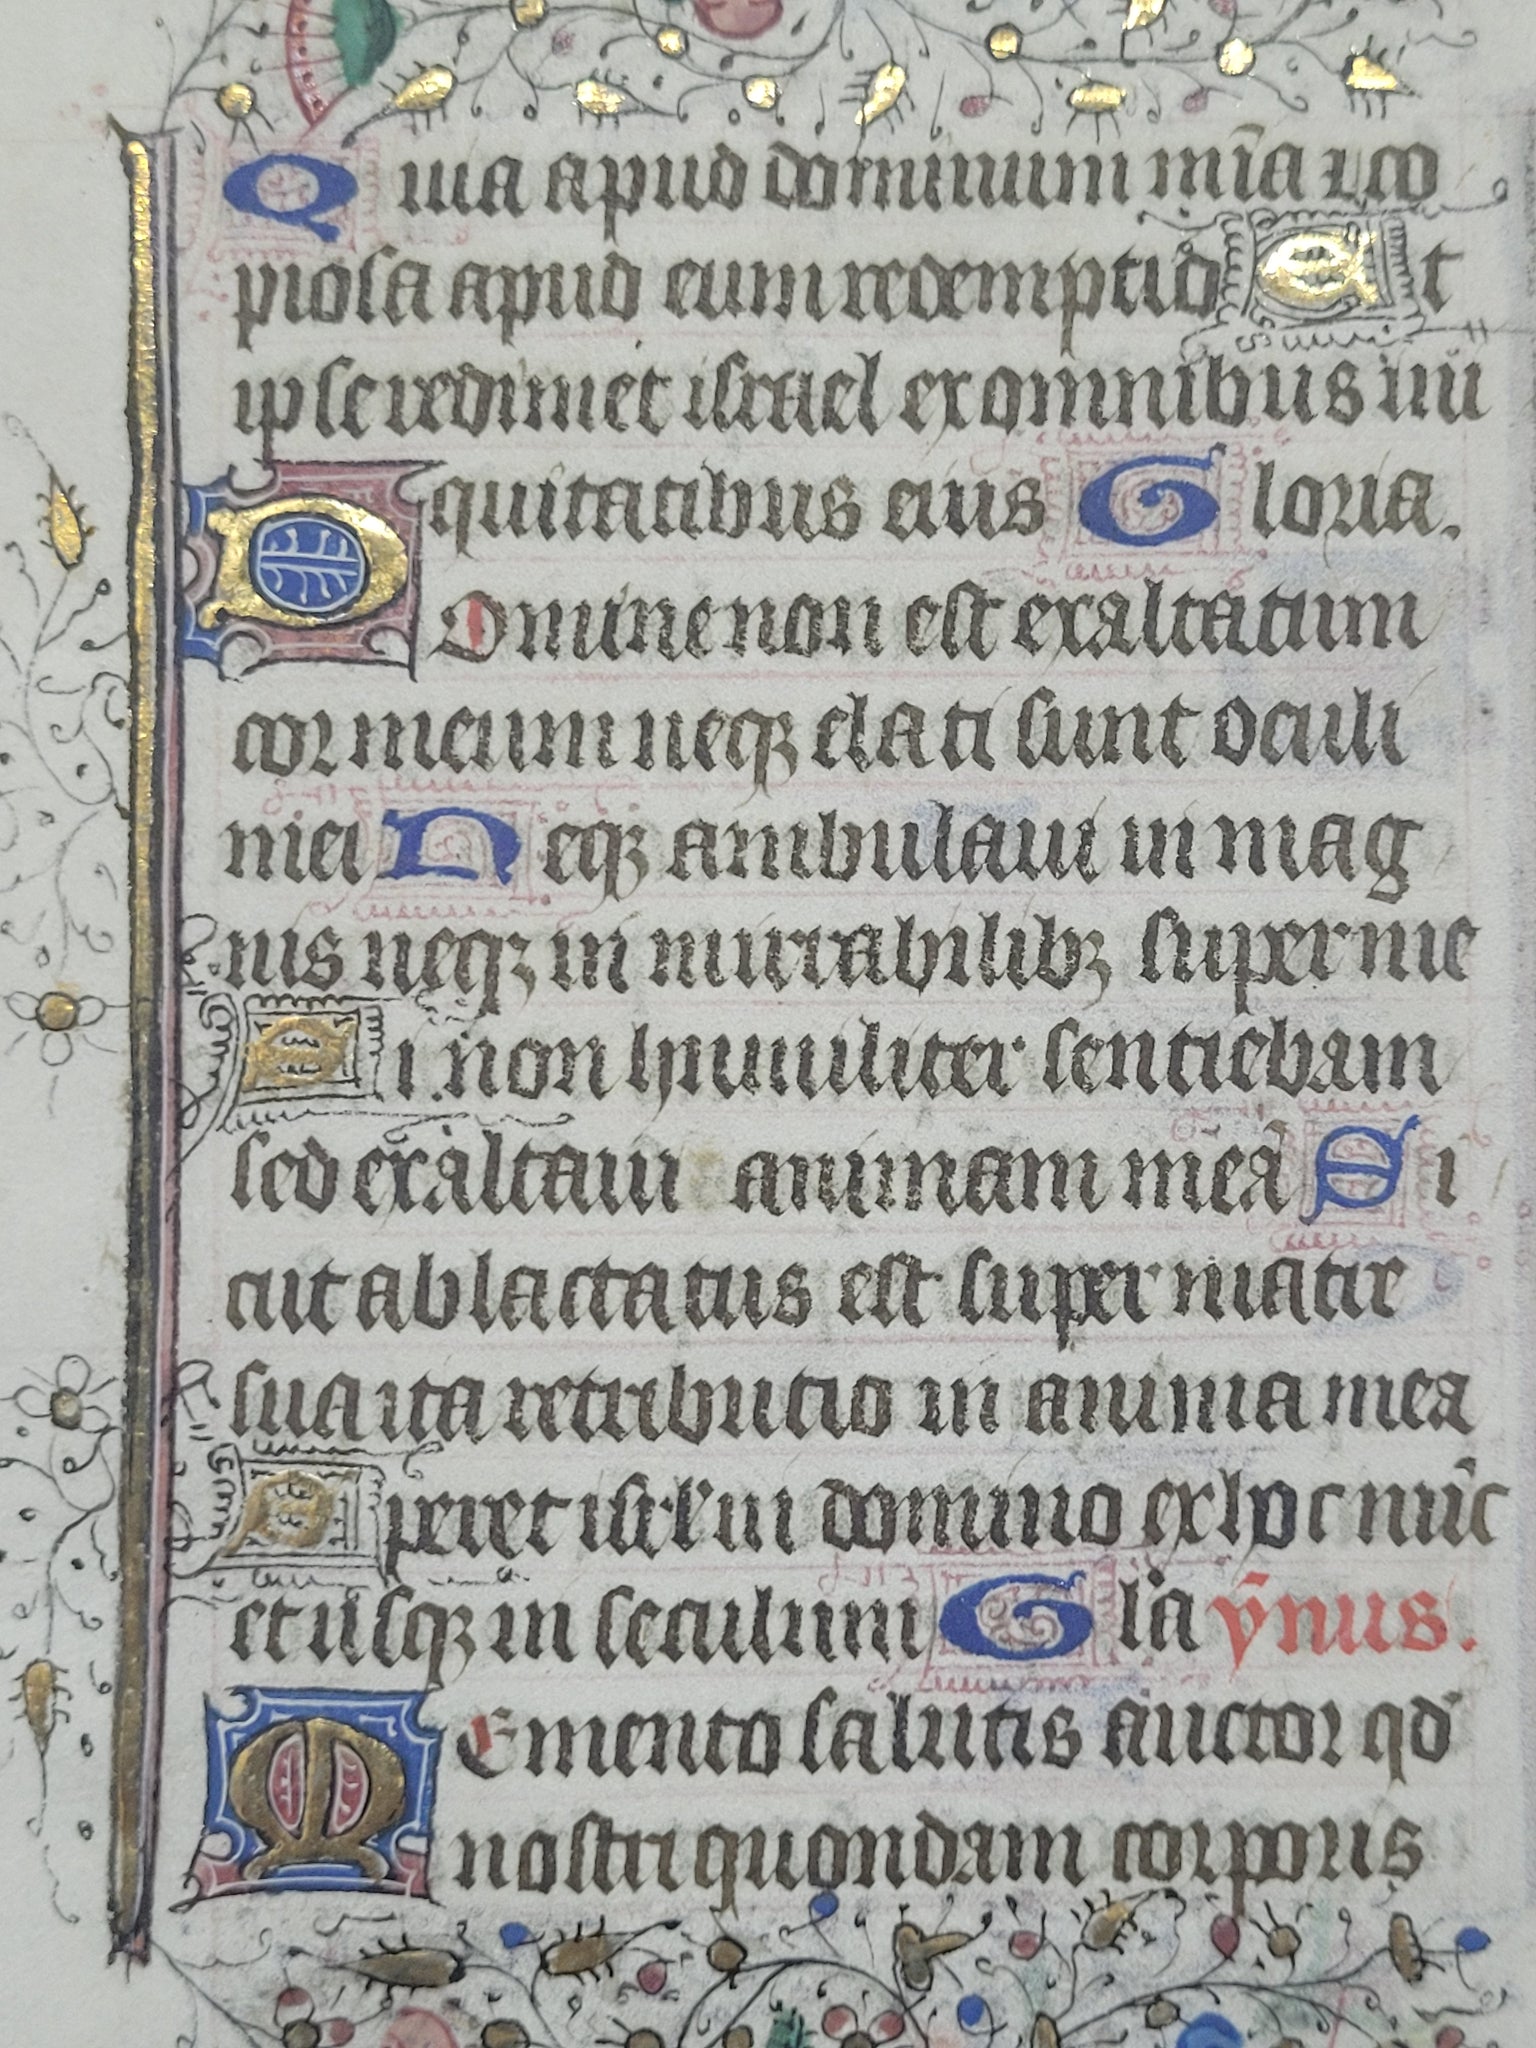 Quia apud dominum mīa ⁊ co
piosa apud eum redemptio Et
ipse redimet israel ex omnibus iniī
quitatibus eius Gloria.
Domine non est exaltatum
cor meum neqꝫ elati sunt oculi
mei Neqꝫ ambulaui in mag
nis neqꝫ in mirabilibꝫ super me
Si non humiliter sentiebam
sed exaltaui animam meā Si
cut ablactatus est super matre
sua ita retributio in anima mea
Speret isrl' in domino ex hoc nūc
et usqꝫ in seculum Glīa ȳnus.
Memento salutis auctor qd'
nostri quondam corporis